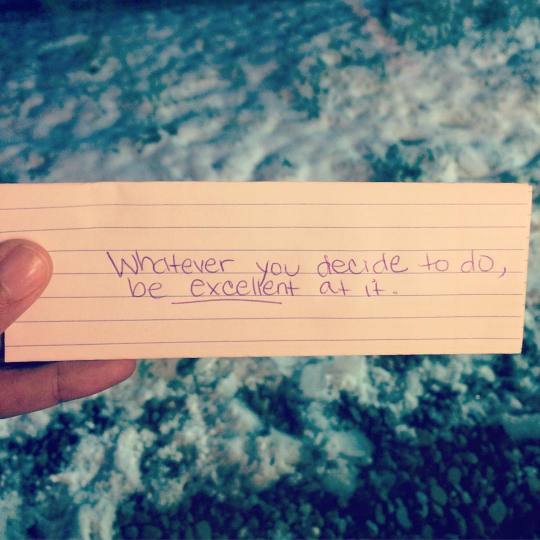 Whatever you decide to do,
be excellent at it.